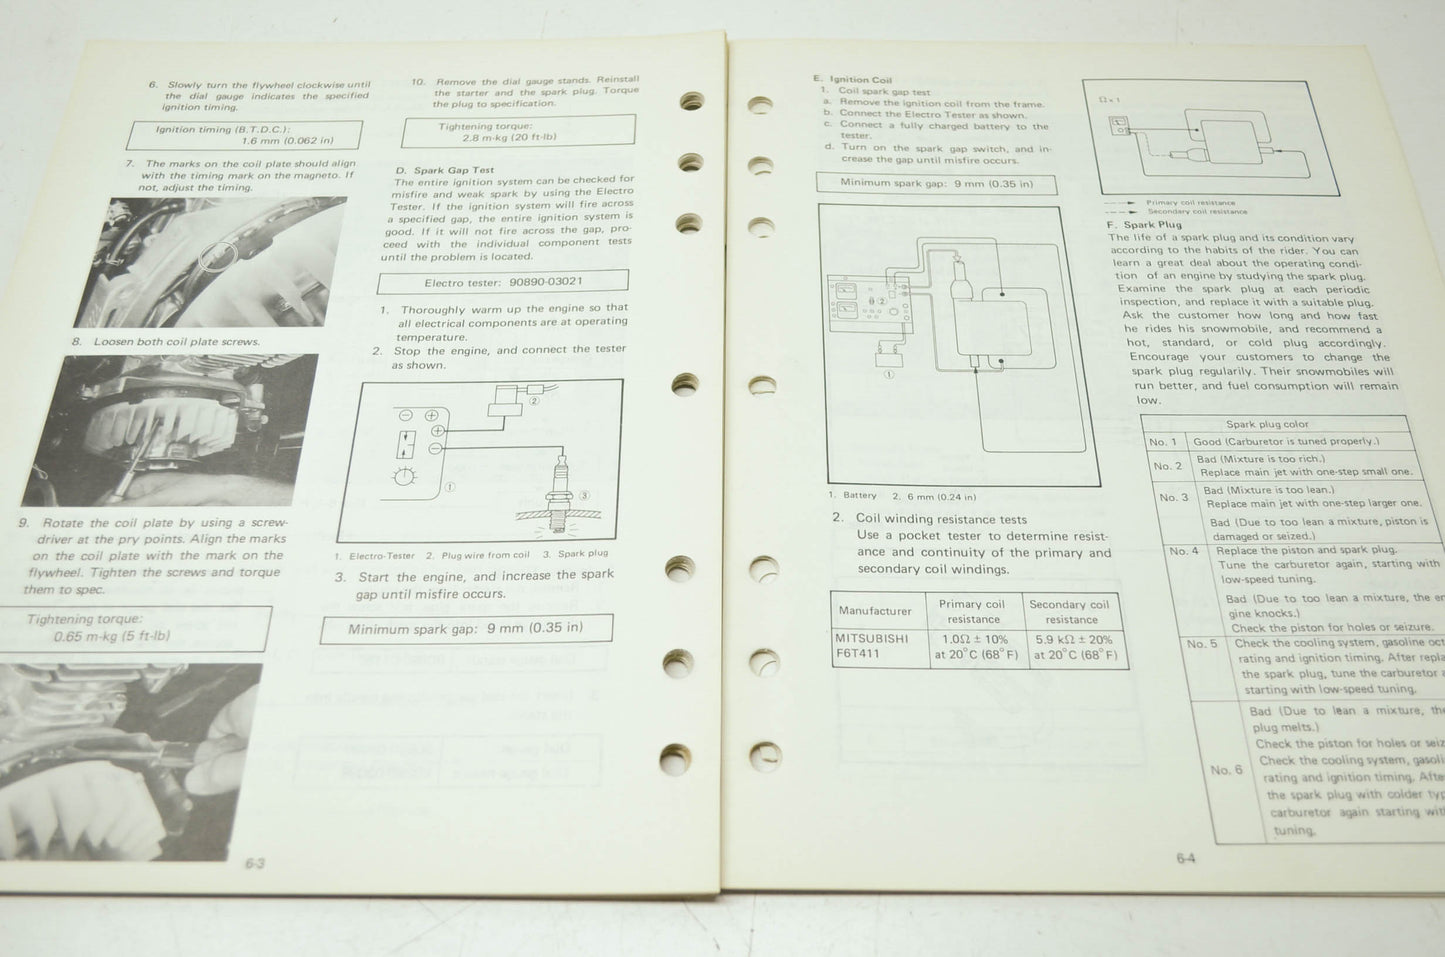 6. Slowly turn the flywheel clockwise until
the dial gauge indicates the specified
ignition timing.
Ignition timing (B.T.D.C.):
1.6 mm (0.062 in)
7. The marks on the coil plate should align
with the timing mark on the magneto. If
not, adjust the timing.
8. Loosen both coil plate screws.
9. Rotate the coil plate by using a screw-
driver at the pry points. Align the marks
on the coil plate with the mark on the
flywheel. Tighten the screws and torque
them to spec.
Tightening torque:
0.65 m-kg (5 ft-lb)
10. Remove the dial gauge stands. Reinstall
the starter and the spark plug. Torque
the plug to specification.
Tightening torque:
2.8 m-kg (20 ft-lb)
D. Spark Gap Test
The entire ignition system can be checked for
misfire and weak spark by using the Electro
Tester. If the ignition system will fire across
a specified gap, the entire ignition system is
good. If it will not fire across the gap, pro-
ceed with the individual component tests
until the problem is located.
Electro tester: 90890-03021
1. Thoroughly warm up the engine so that
all electrical components are at operating
temperature.
2. Stop the engine, and connect the tester
as shown.
② 
① 
③
1. Electro-Tester 2. Plug wire from coil 3. Spark plug
3. Start the engine, and increase the spark
gap until misfire occurs.
Minimum spark gap: 9 mm (0.35 in)
6-3
E. Ignition Coil
1. Coil spark gap test
a. Remove the ignition coil from the frame.
b. Connect the Electro Tester as shown.
c. Connect a fully charged battery to the
tester.
d. Turn on the spark gap switch, and in-
crease the gap until misfire occurs.
Minimum spark gap: 9 mm (0.35 in)
②
①
1. Battery 2. 6 mm (0.24 in)
2. Coil winding resistance tests
Use a pocket tester to determine resist-
ance and continuity of the primary and
secondary coil windings.
Manufacturer Primary coil resistance Secondary coil resistance
MITSUBISHI F6T411 1.0Ω ± 10% at 20°C (68°F) 5.9 kΩ ± 20% at 20°C (68°F)
Ω × 1
Primary coil resistance
Secondary coil resistance
F. Spark Plug
The life of a spark plug and its condition vary
according to the habits of the rider. You can
learn a great deal about the operating condi-
tion of an engine by studying the spark plug.
Examine the spark plug at each periodic
inspection, and replace it with a suitable plug.
Ask the customer how long and how fast
he rides his snowmobile, and recommend a
hot, standard, or cold plug accordingly.
Encourage your customers to change the
spark plug regularily. Their snowmobiles will
run better, and fuel consumption will remain
low.
Spark plug color
No. 1 Good (Carburetor is tuned properly.)
No. 2 Bad (Mixture is too rich.)
Replace main jet with one-step small one.
No. 3 Bad (Mixture is too lean.)
Replace main jet with one-step larger one.
No. 4 Bad (Due to too lean a mixture, piston is
damaged or seized.)
Replace the piston and spark plug.
Tune the carburetor again, starting with
low-speed tuning.
No. 5 Bad (Due to too lean a mixture, the en
gine knocks.)
Check the piston for holes or seizure.
Check the cooling system, gasoline oct
rating and ignition timing. After repla
the spark plug, tune the carburetor a
starting with low-speed tuning.
No. 6 Bad (Due to lean a mixture, the
plug melts.)
Check the piston for holes or seiz
Check the cooling system, gasoli
rating and ignition timing. Afte
the spark plug with colder typ
carburetor again starting wit
tuning.
6-4